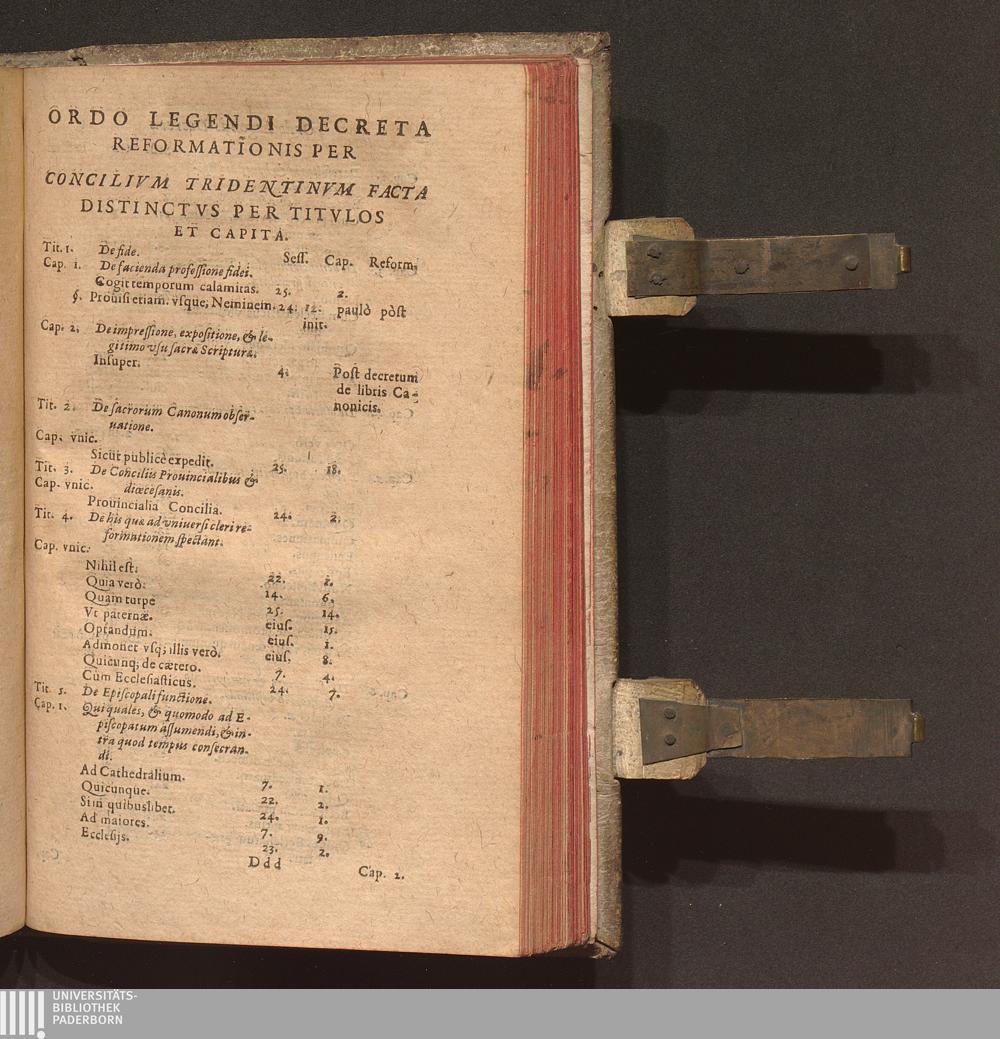 ORDO LEGENDI DECRETA
REFORMATIONIS PER
CONCILIVM TRIDENTINVM FACTA
DISTINCTVS PER TITVLOS
ET CAPITA.
Tit. 1. De fide. Seſſ. Cap. Reform.
Cap. 1. De facienda profeſſione fidei.
Cogit temporum calamitas. 25. 2.
§. Prouiſi etiam. vſque, Neminem. 24. 12. paulò pòſt
init.
Cap. 2. De impreſſione, expoſitione, & le-
gitimo vſu ſacræ Scripturæ.
Inſuper. 4. Poſt decretum
de libris Ca-
nonicis.
Tit. 2. De ſacrorum Canonum obſer-
uatione.
Cap. vnic.
Sicut publicè expedit. 25. 18.
Tit. 3. De Conciliis Prouincialibus &
Cap. vnic. diœceſanis.
Prouincialia Concilia. 24. 2.
Tit. 4. De his quæ ad vniuerſi cleri re-
formationem ſpectant.
Cap. vnic.
Nihil eſt. 22. 1.
Quia verò. 14. 6.
Quam turpe 25. 14.
Vt paternæ. eiuſ. 15.
Optandum. eiuſ. 1.
Admonet vſq; illis verò. eiuſ. 8.
Quicunq; de cætero. 7. 4.
Cùm Eccleſiaſticus. 24. 7.
Tit. 5. De Epiſcopali functione.
Cap. 1. Qui quales, & quomodo ad E-
piſcopatum aſſumendi, & in-
tra quod tempus conſecran-
di.
Ad Cathedralium. 7. 1.
Quicunque. 22. 2.
Si in quibuslibet. 24. 1.
Ad maiores. 7. 9.
Eccleſijs. 23. 2.
Ddd Cap. 2.
UNIVERSITÄTS-
BIBLIOTHEK
PADERBORN